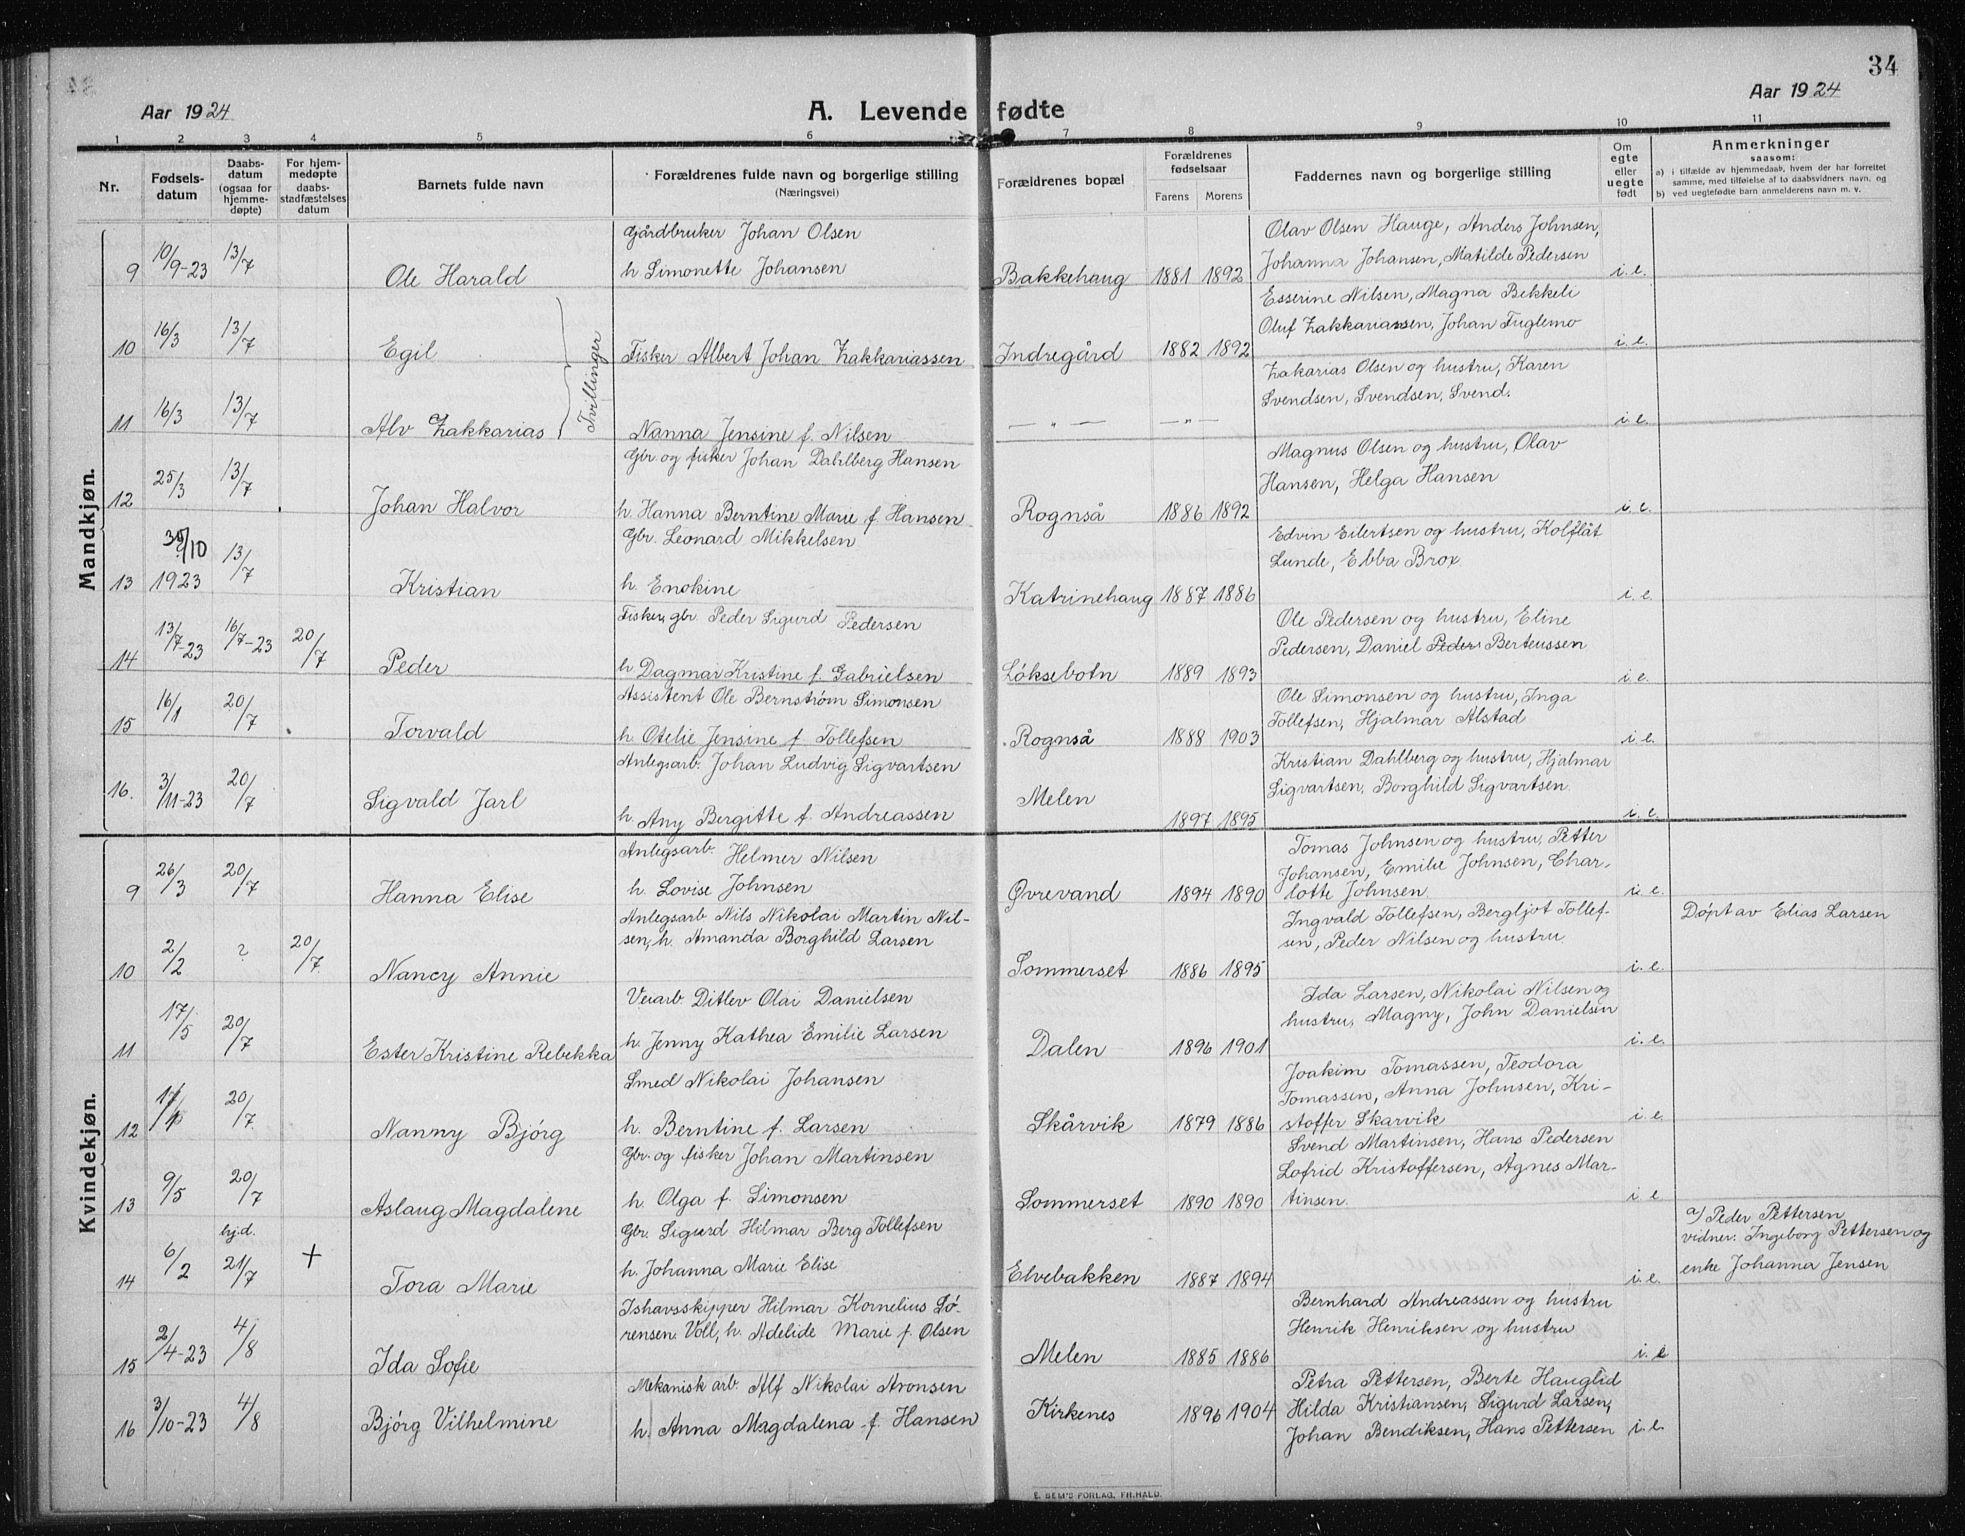 34
Aar 1924
A. Levende fødte
Aar 1924
1 2 3 4 5 6 7 8 9 10 11
Nr.
Fødselsdatum
Daabsdatum (ogsaa for hjemmedøpte)
For hjemmedøpte daabsstadfæstelses datum
Barnets fulde navn
Forældrenes fulde navn og borgerlige stilling
(Næringsvei)
Forældrenes bopæl
Forældrenes fødselsaar
Farens Morens
Faddernes navn og borgerlige stilling
Om egte eller uegte født
Anmerkninger
saasom:
a) i tilfælde av hjemmedaab, hvem der har forrettet
samme, med tilføielse af to daabsvidners navn, og
b) ved uegtefødte barn anmelderens navn m. v.
Mandkjøn.
Gårdbruker Johan Olsen
Olav Olsen Hauge, Anders Johnsen,
9 10/9-23 13/7 Ole Harald h Simonette Johansen Bakkehaug 1881 1892 Johanna Johansen, Matilde Pedersen i.e.
Esserine Nilsen, Magna Bekkeli
10 16/3 13/7 Egil Fisker Albert Johan Zakkariassen Indregård 1882 1892 Oluf Zakkariassen, Johan Fuglemo i.e.
Tvillinger
Zakarias Olsen og hustru, Karen
11 16/3 13/7 Alv Zakkarias Nanna Jensine f. Nilsen — „ — — „ — Svendsen, Svendsen, Svend. i.e.
Gbr og fisker Johan Dahlberg Hansen
Magnus Olsen og hustru, Olav
12 25/3 13/7 Johan Halvor h. Hanna Berntine Marie f. Hansen Rognså 1886 1892 Hansen, Helga Hansen i.e.
Gbr. Leonard Mikkelsen
Edvin Eilertsen og hustru, Kolflåt
13 30/10 1923 13/7 Kristian h. Enokine Katrinehaug 1887 1886 Lunde, Ebba Brox i.e.
Fisker, gbr. Peder Sigurd Pedersen
Ole Pedersen og hustru, Eline
14 13/7-23 16/7-23 20/7 Peder h Dagmar Kristine f. Gabrielsen Løksebotn 1889 1893 Pedersen, Daniel Peder Berteussen i.e.
Assistent Ole Bernstrøm Simonsen
Ole Simonsen og hustru, Inga
15 16/1 20/7 Torvald h. Otelie Jensine f. Tollefsen Rognså 1888 1903 Tollefsen, Hjalmar Alstad i.e.
Anlegsarb. Johan Ludvig Sigvartsen
Kristian Dahlberg og hustru, Hjalmar
16. 3/11-23 20/7 Sigvald Jarl h. Any Bergitte f. Andreassen Melen 1897 1895 Sigvartsen, Borghild Sigvartsen. i.e.
Kvindekjøn.
Anlegsarb. Helmer Nilsen
Tomas Johnsen og hustru, Petter
Johansen, Emilie Johnsen, Char-
9 26/3 20/7 Hanna Elise h. Lovise Johnsen Øvrevand 1894 1890 lotte Johnsen i.e.
Anlegsarb Nils Nikolai Martin Nil-
Ingvald Tollefsen, Bergljot Tollef-
Døpt av Elias Larsen
10 2/2 ? 20/7 Nancy Annie sen, h. Amanda Borghild Larsen Sommerset 1886 1895 sen, Peder Nilsen og hustru i.e.
Veiarb Ditlev Olai Danielsen
Ida Larsen, Nikolai Nilsen og
11 17/5 20/7 Ester Kristine Rebekka h. Jenny Kathea Emilie Larsen Dalen 1896 1901 hustru, Magny, John Danielsen i.e.
Smed Nikolai Johansen
Joakim Tomassen, Teodora
Tomassen, Anna Johnsen, Kri-
12 20/7 Nanny Bjørg h. Berntine f. Larsen Skårvik 1879 1886 stoffer Skarvik i.e.
Gbr. og fisker Johan Martinsen
Svend Martinsen, Hans Pedersen
Lofrid Kristoffersen, Agnes Mar-
13 9/5 20/7 Aslaug Magdalene h. Olga f. Simonsen Sommerset 1890 1890 tinsen. i.e
Gbr. Sigurd Hilmar Berg Tollefsen
a/ Peder Pettersen
vidner: Ingeborg Pettersen og
14 6/2 hj.d. 21/7 + Tora Marie h. Johanna Marie Elise Elvebakken 1887 1894 i.e. enke Johanna Jensen
Ishavsskipper Hilmar Kornelius Sø-
Bernhard Andreassen og hustru
15 2/4-23 4/8 Ida Sofie rensen Voll, h. Adelide Marie f. Olsen Melen 1885 1886 Henrik Henriksen og hustru i.e
Mekanisk arb. Alf Nikolai Aronsen
Petra Pettersen, Berte Hauglid
16 3/10-23 4/8 Bjørg Vilhelmine h. Anna Magdalena f. Hansen Kirkenes 1896 1904 Hilda Kristiansen, Sigurd Larsen,
Johan Bendiksen, Hans Pettersen i.e.
E. SEM'S FORLAG, FR.HALD.